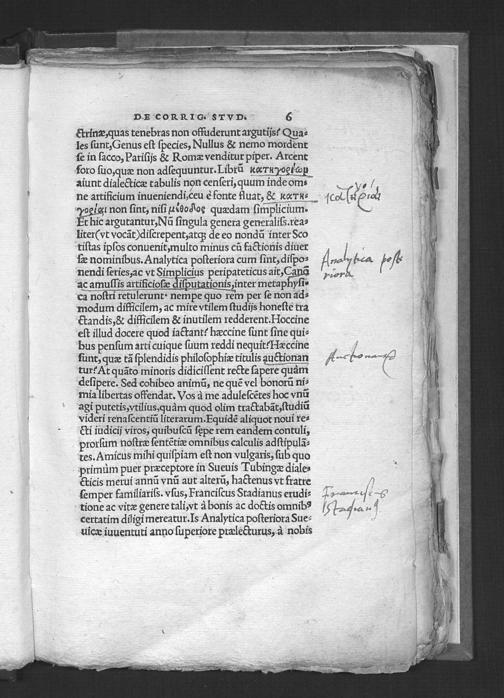 DE CORRIG. STVD. 6
ctrinæ, quas tenebras non offuderunt argutijs? Qua-
les sunt, Genus est species, Nullus & nemo mordent
se in sacco, Parisijs & Romæ venditur piper. Arcent
foro suo, quæ non adsequuntur. Librũ κατηγορίωμ
aiunt dialecticæ tabulis non censeri, quum inde om-
ne artificium inueniendi, ceu è fonte fluat, & κατη-
γορίαι non sint, nisi μέθοδος quædam simplicium.
Et hic argutantur, Nũ singula genera generaliss. rea-
liter (vt vocãt) discrepent, atqꝫ de eo nondũ inter Sco
tistas ipsos conuenit, multo minus cũ factionis diuer
sæ nominibus. Analytica posteriora cum sint, dispo-
nendi series, ac vt Simplicius peripateticus ait, Canõ
ac amussis artificiosæ disputationis, inter metaphysi-
ca nostri retulerunt: nempe quo rem per se non ad-
modum difficilem, ac mire vtilem studijs honeste tra
ctandis, & difficilem & inutilem redderent. Hoccine
est illud docere quod iactant? hæccine sunt sine qui-
bus pensum arti cuique suum reddi nequit? Hæccine
sunt, quæ tã splendidis philosophiæ titulis auctionan
tur? At quãto minoris didicissent recte sapere quàm
desipere. Sed cohibeo animũ, ne què vel bonorũ ni-
mia libertas offendat. Vos à me adulescẽtes hoc vnũ
agi putetis, vtilius, quàm quod olim tractabãt, studiũ
videri renascentiũ literarum. Equidẽ aliquot noui re-
cti iudicij viros, quibuscũ sepe rem eandem contuli,
prorsum nostræ sentẽtiæ omnibus calculis adstipulã-
tes. Amicus mihi quispiam est non vulgaris, sub quo
primùm puer præceptore in Sueuis Tubingæ diale-
cticis merui annũ vnũ aut alterũ, hactenus vt fratre
semper familiariss. vsus, Franciscus Stadianus erudi-
tione ac vitæ genere tali, vt à bonis ac doctis omnibꝰ
certatim diligi mercatur. Is Analytica posteriora Sue-
uicæ iuuentuti anno superiore prælecturus, à nobis
Analytica poste
riora
Franciscus
Stadianus